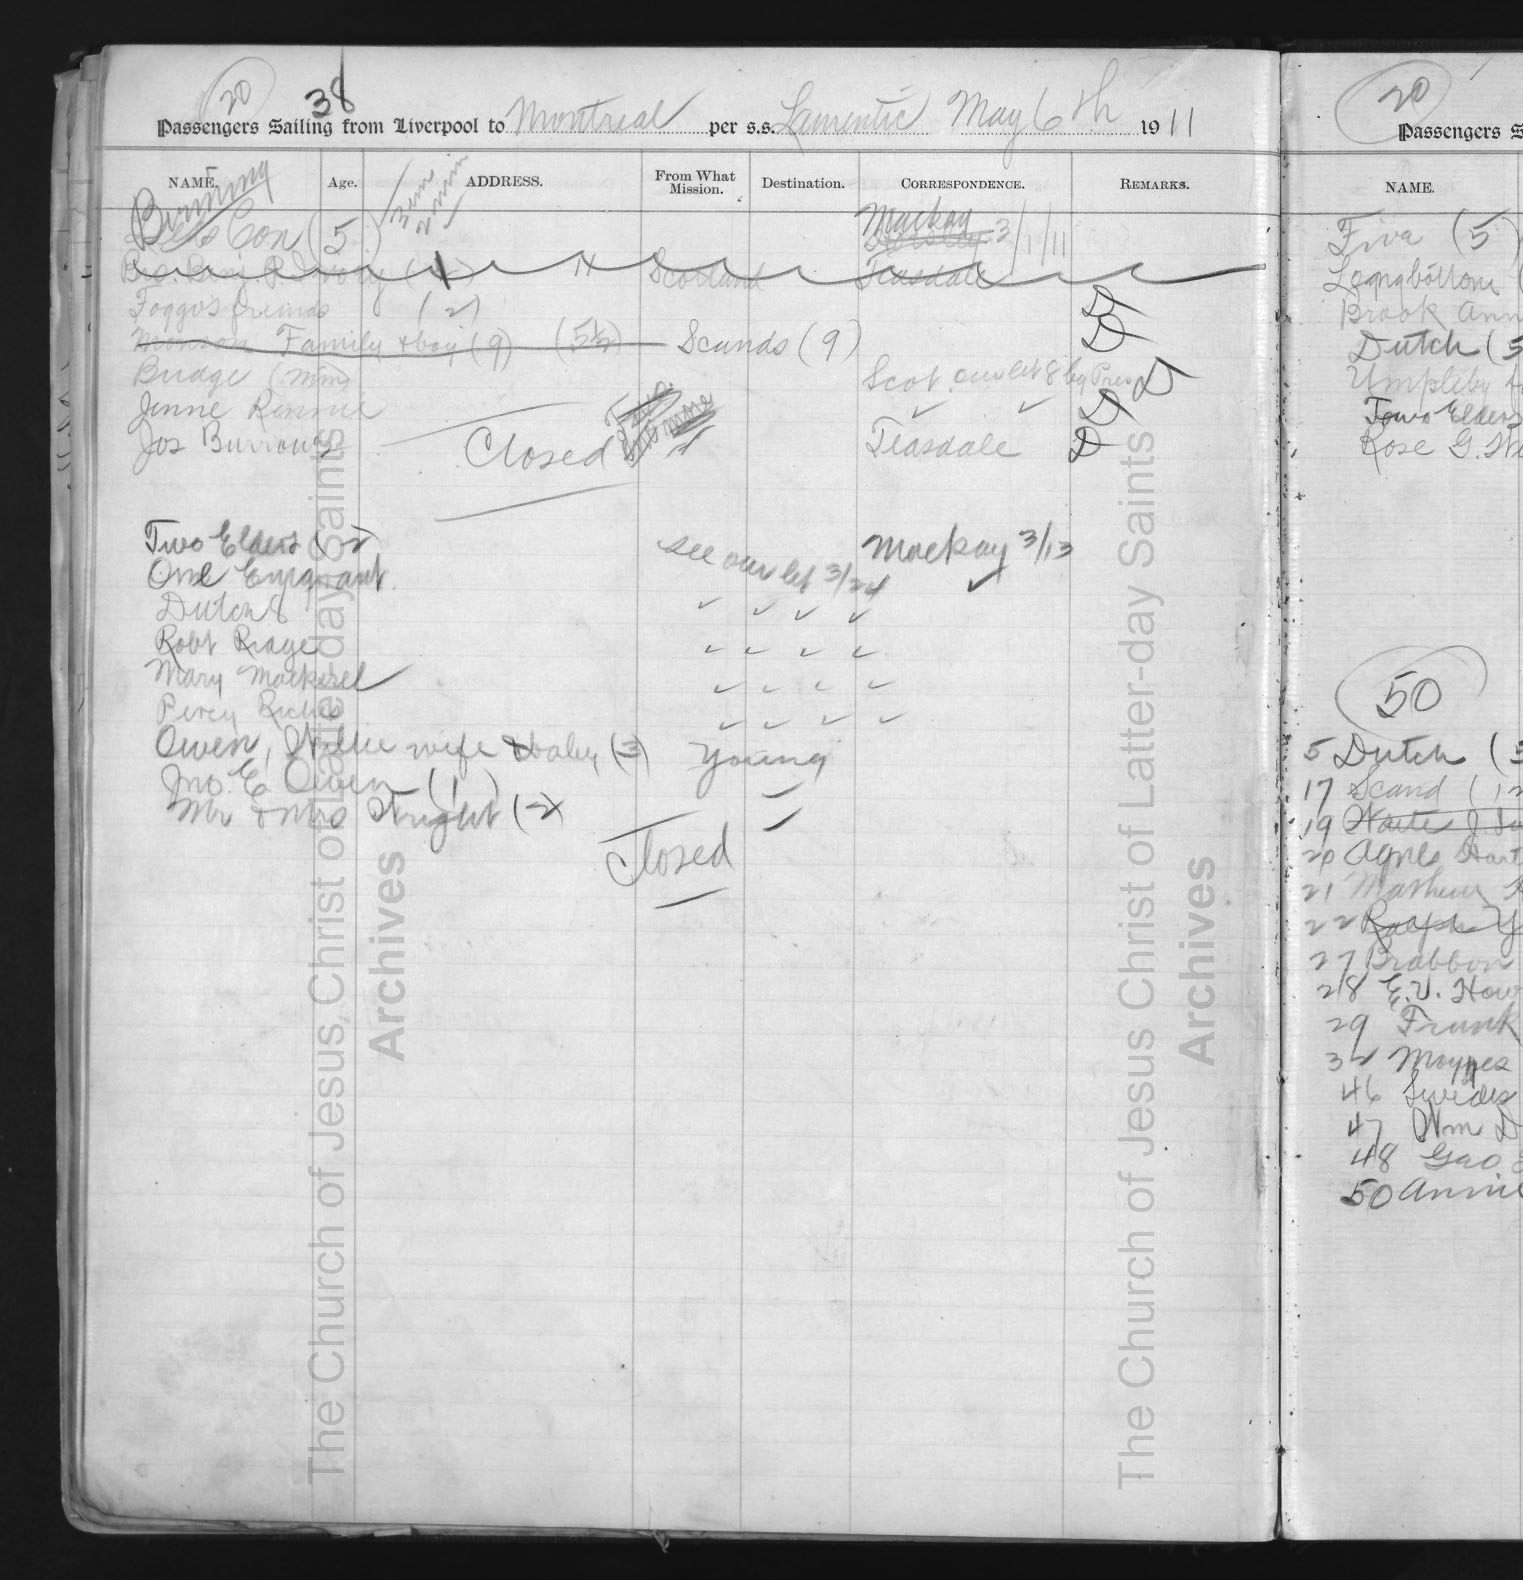 20
38
Passengers Sailing from Liverpool to Montreal per s.s. Laurentic May 6th 1911
NAME. Age. ADDRESS. From What Mission. Destination. CORRESPONDENCE. REMARKS.
Con (5)
Mackay 3/1/11
Scotland Teasdale
(2)
Family & boy (9) (5½) Scands (9)
D
D
Budge Scot our let 8 by Pres D
Jenne Rennie D
Jos Burrows Closed Teasdale D
Two Elders (2) see our let 3/24 Mackay 3/13
One Emigrant
Dutch 8
Robt
Mary Mackerel
Percy Riches
Owen, Willie wife & baby (3) Young
Jno. E. Owen (1)
Mr & Mrs (2)
Closed
20
Passengers S
NAME.
(5)
Longbottom
Brook Ann
Dutch (5
Umpleby
Two Elders
Rose G.
50
5 Dutch (5
17 Scand (12
19
20 Agnes Hart
21 Mathew
22 Ralph
27 Brabbon
28 E.V. How
29 Frank
32 Moyes
46 Swedes
47 Wm D
48 Geo
50 Annie
The Church of Jesus Christ of Latter-day Saints
Archives
The Church of Jesus Christ of Latter-day Saints
Archives